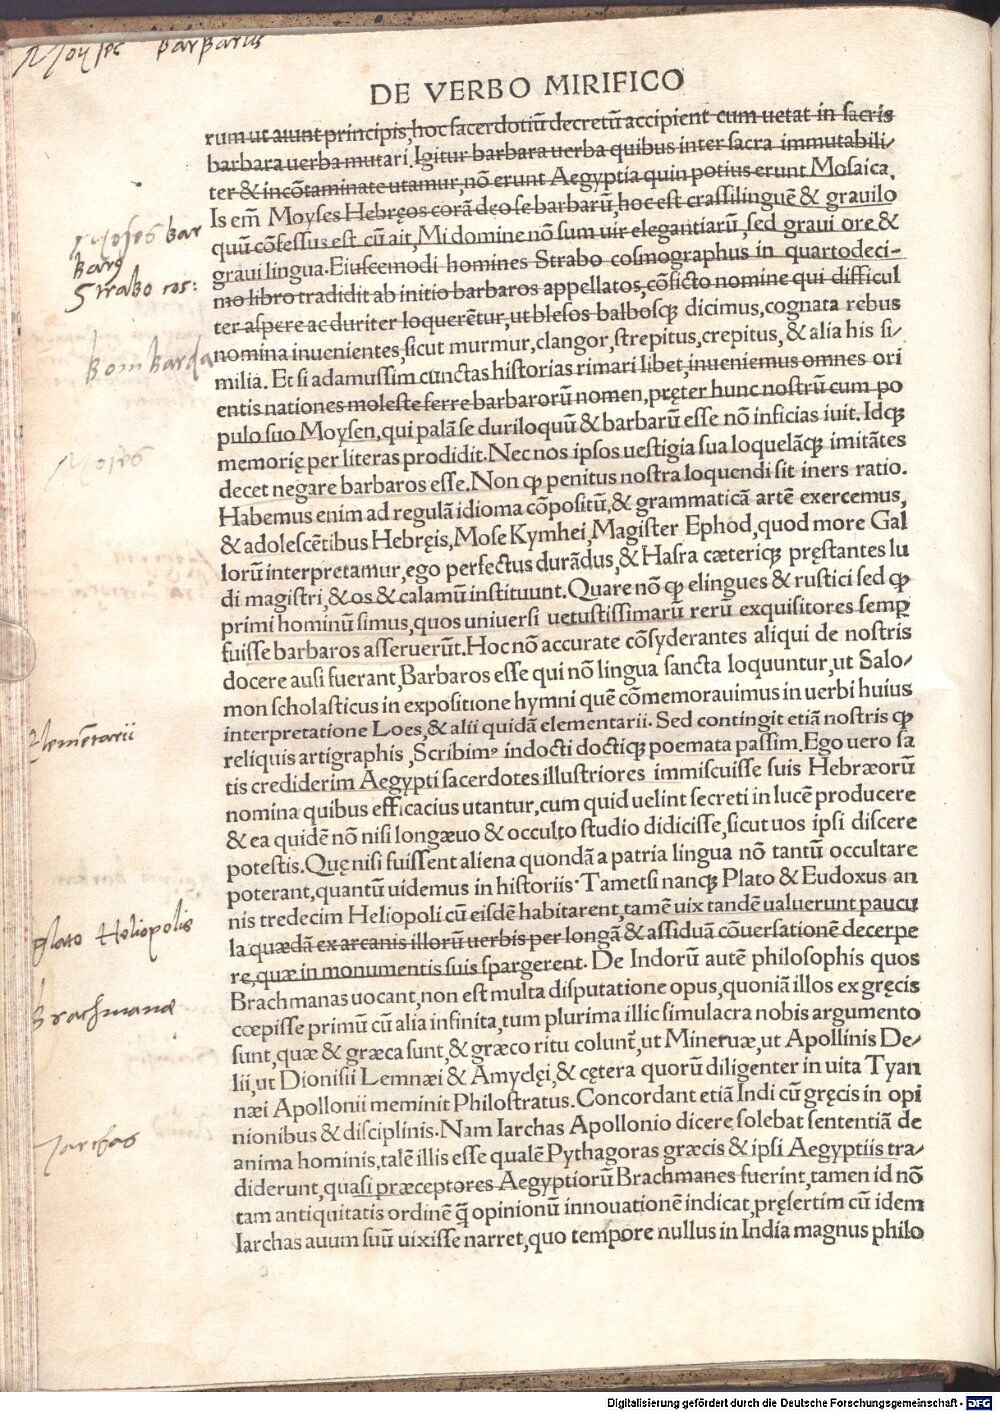 Moyses barbarus
DE VERBO MIRIFICO
rum ut aiunt principis, hoc sacerdotiū decretū accipient cum uetat in sacris
barbara uerba mutari. Igitur barbara uerba quibus inter sacra immutabili/
ter & incōtaminate utamur, nō erunt Aegyptia quin potius erunt Mosaica.
Is em̄ Moyses Hebręos corā deo se barbarū, hoc est crassilinguē & grauilo
quū cōfessus est cū ait, Mi domine nō sum uir elegantiarū, sed graui ore &
graui lingua. Eiuscemodi homines Strabo cosmographus in quartodeci-
mo libro tradidit ab initio barbaros appellatos, cōficto nomine qui difficul
ter aspere ac duriter loquerētur, ut blesos balbosq; dicimus, cognata rebus
nomina inuenientes, sicut murmur, clangor, strepitus, crepitus, & alia his si/
milia. Et si adamussim cunctas historias rimari libet, inueniemus omnes ori
entis nationes moleste ferre barbarorū nomen, pręter hunc nostrū cum po
pulo suo Moysen, qui palā se duriloquū & barbarū esse nō inficias iuit. Idq;
memorię per literas prodidit. Nec nos ipsos uestigia sua loquelāq; imitātes
decet negare barbaros esse. Non ꝙ penitus nostra loquendi sit iners ratio.
Habemus enim ad regulā idioma cōpositū, & grammaticā artē exercemus,
& adolescētibus Hebręis, Mose Kymhei, Magister Ephod, quod more Gal
lorū interpretamur, ego perfectus durādus, & Hasra cæteriq; pręstantes lu
di magistri, & os & calamū instituunt. Quare nō ꝙ elingues & rustici sed ꝙ
primi hominū simus, quos uniuersi uetustissimarū rerū exquisitores semp̱
fuisse barbaros asseruerūt. Hoc nō accurate cōsyderantes aliqui de nostris
docere ausi fuerant, Barbaros esse qui nō lingua sancta loquuntur, ut Salo/
mon scholasticus in expositione hymni quē cōmemorauimus in uerbi huius
interpretatione Loes, & alii quidā elementarii. Sed contingit etiā nostris ꝙ
reliquis artigraphis, Scribimꝰ indocti doctiq; poemata passim. Ego uero sa
tis crediderim Aegypti sacerdotes illustriores immiscuisse suis Hebræorū
nomina quibus efficacius utantur, cum quid uelint secreti in lucē producere
& ea quidē nō nisi longæuo & occulto studio didicisse, sicut uos ipsi discere
potestis. Quę nisi fuissent aliena quondā a patria lingua nō tantū occultare
poterant, quantū uidemus in historiis. Tametsi nanq; Plato & Eudoxus an
nis tredecim Heliopoli cū eisdē habitarent, tamē uix tandē ualuerunt paucu
la quædā ex arcanis illorū uerbis per longā & assiduā cōuersationē decerpe
re, quæ in monumentis suis spargerent. De Indorū autē philosophis quos
Brachmanas uocant, non est multa disputatione opus, quoniā illos ex gręcis
cœpisse primū cū alia infinita, tum plurima illic simulacra nobis argumento
sunt, quæ & græca sunt, & græco ritu colunt᷑, ut Mineruæ, ut Apollinis De/
lii, ut Dionisii Lemnæi & Amyclęi, & cętera quorū diligenter in uita Tyan
næi Apollonii meminit Philostratus. Concordant etiā Indi cū gręcis in opi
nionibus & disciplinis. Nam Iarchas Apollonio dicere solebat sententiā de
anima hominis, talē illis esse qualē Pythagoras græcis & ipsi Aegyptiis tra/
diderunt, quasi præceptores Aegyptiorū Brachmanes fuerint, tamen id nō
tam antiquitatis ordinē q̄ opinionū innouationē indicat, pręsertim cū idem
Iarchas auum suū uixisse narret, quo tempore nullus in India magnus philo
Moses bar
barꝰ
Strabo cos:
Bombarda
Moses
Elemētarii
Plato Heliopolis
Brachmanæ
Jarchas
Digitalisierung gefördert durch die Deutsche Forschungsgemeinschaft - DFG